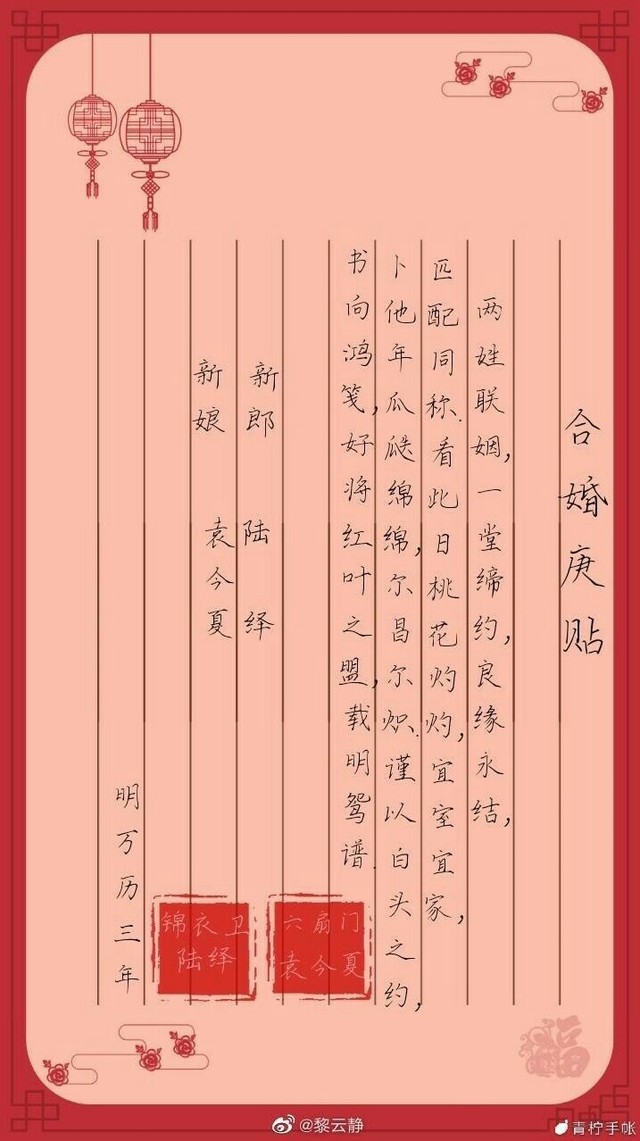 合婚庚贴
两姓联姻,一堂缔约,良缘永结,
匹配同称.看此日桃花灼灼,宜室宜家,
卜他年瓜瓞绵绵,尔昌尔炽.谨以白头之约,
书向鸿笺,好将红叶之盟,载明鸳谱.
新郎 陆绎
新娘 袁今夏
明万历三年
六扇门
袁今夏
锦衣卫
陆绎
@黎云静
青柠手帐
福